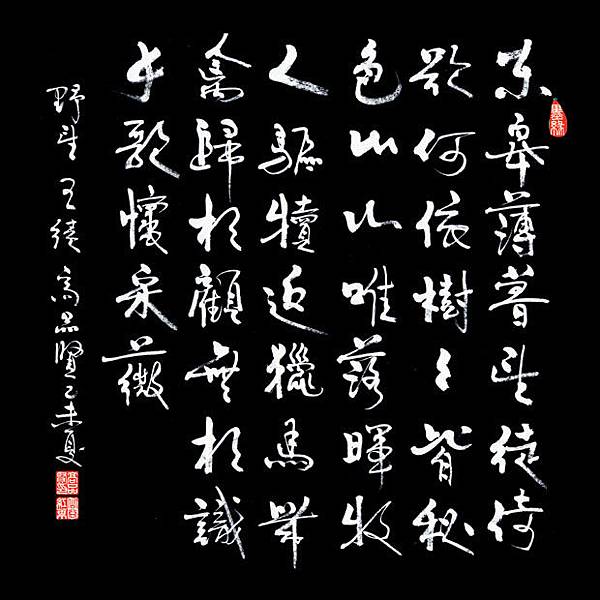 東皋薄暮望徙倚
欲何依樹々皆秋
色山山唯落暉牧
人驅犢返獵馬帶
禽歸相顧無相識
長歌懷采薇
野望 王績 高品賢乙未夏